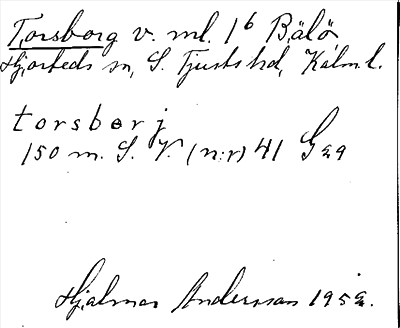 Torsborg v. ml. 1⁶ Bälö
Hjorteds sn, S. Tjusts hd, Kalm. l.
torsborj
150 m. S. V. (n:r) 41 Gäa
Hjalmar Andersson 1952.